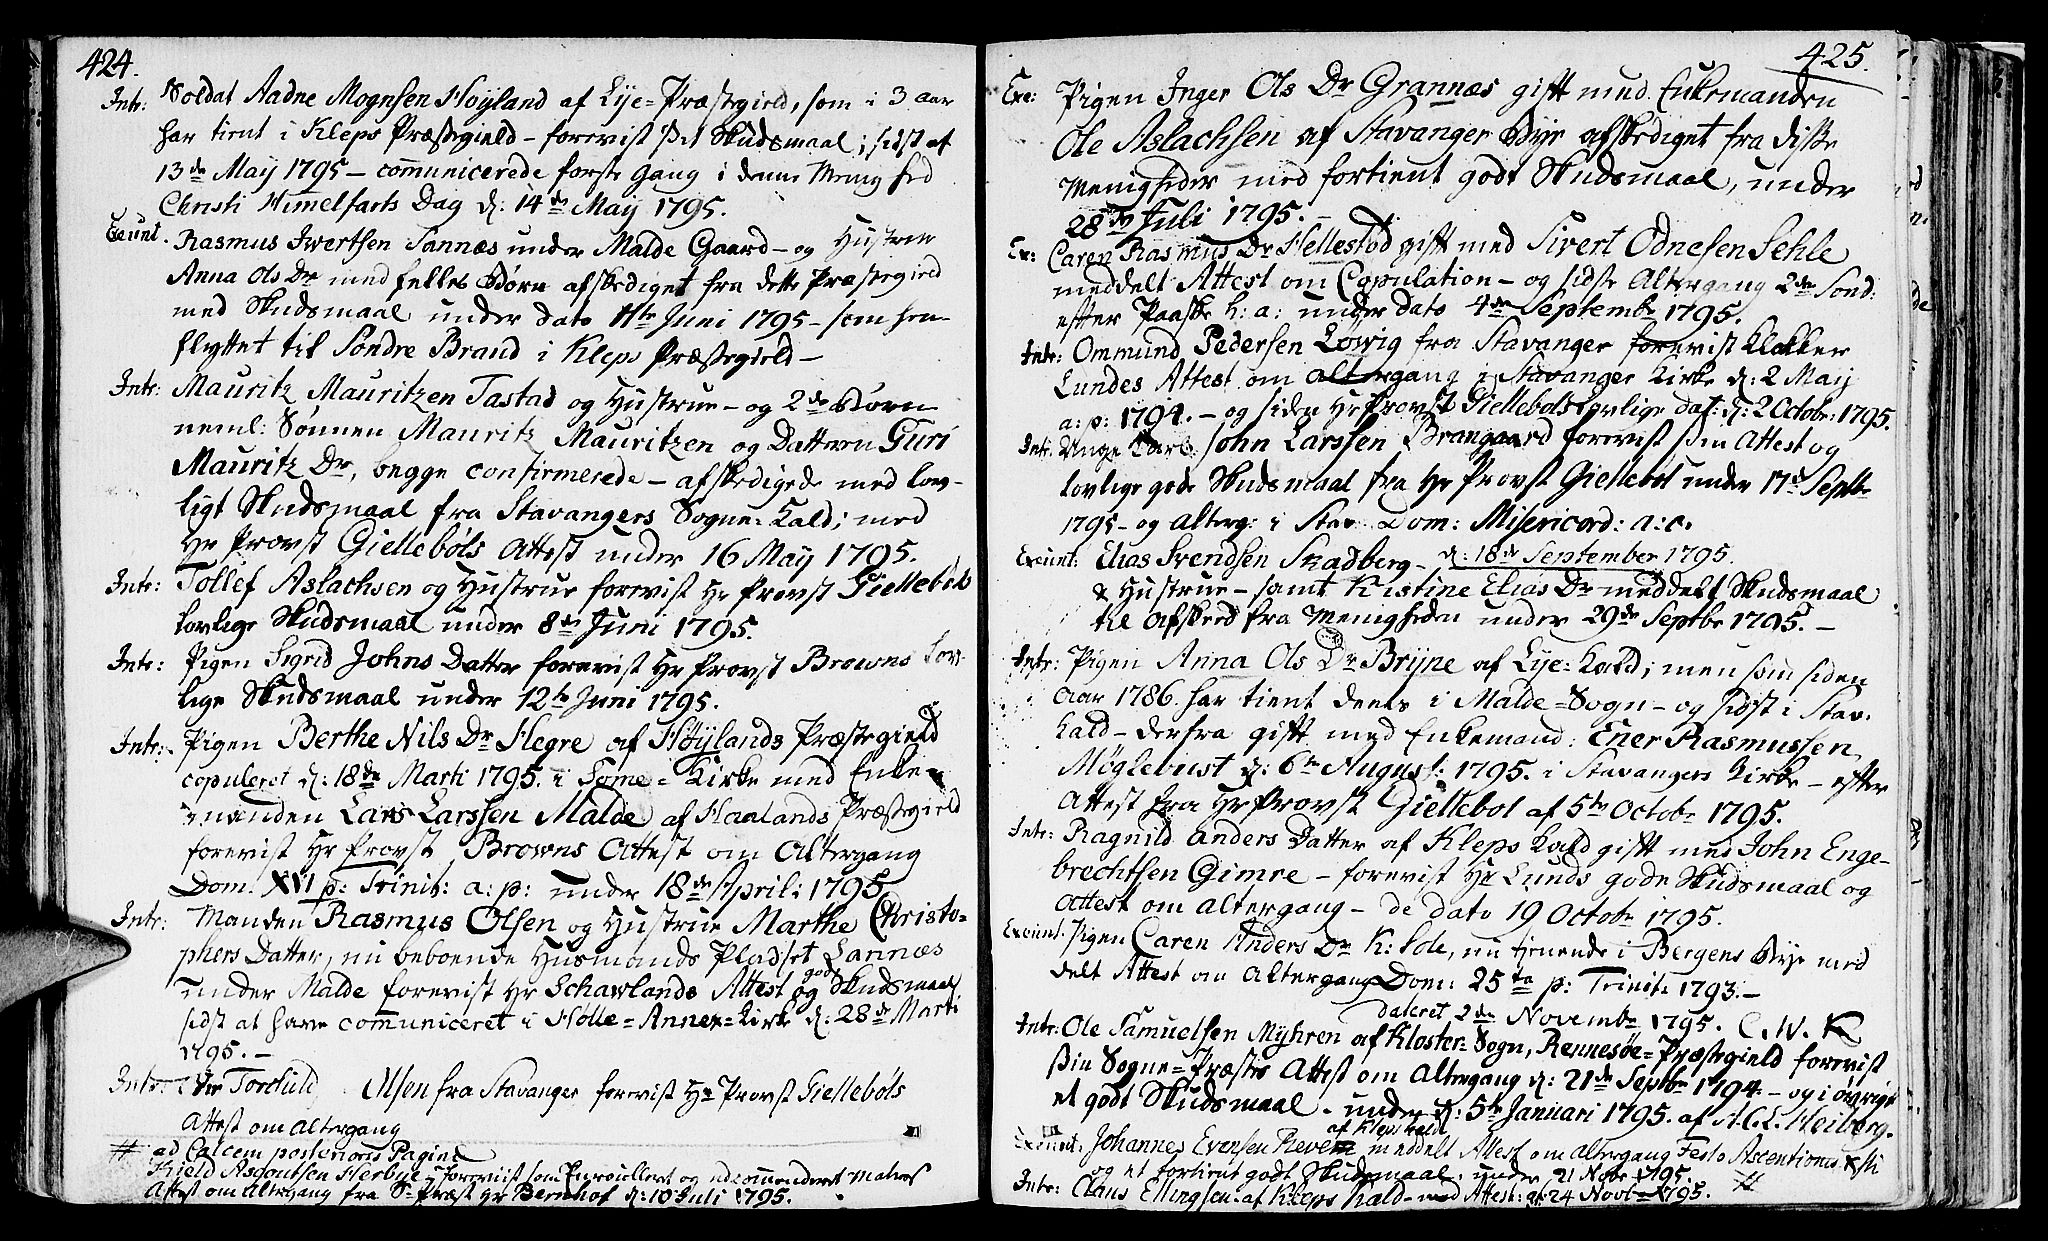 424.
Intr: Soldat Aadne Mognsen Høyland af Lye=Præstegield, som i 3 aar
har tient i Kleps Præstegield – forevist sit Skudsmaal; sidst af
13de Maij 1795 – communicerede første Gang i denne Menighed
Christi Himelfarts Dag d: 14de May 1795.
Exeunt. Rasmus Iwertsen Sannæs under Malde Gaard – og Hustrue
Anna Ols Dr med felles Børn afskediget fra dette Præstegield
med Skudsmaal under dato 11te Juni 1795 – som hen
flyttet til Søndre Braud i Kleps Præstegield –
Intr: Mauritz Mauritzen Tastad og Hustrue – og 2de Børn
neml: Sønnen Mauritz Mauritzen og Datteren Guri
Mauritz Dr, begge confirmerede – afskedigede med lov-
ligt Skudsmaal fra Stavangers Sogne: Kald; med
Hr Provst Giellebøls Attest under 16 May 1795.
Intr: Tollef Aslachsen og Hustrue forevist Hr Provst Giellebøls
lovlige Skudsmaal under 8de Juni 1795.
Intr: Pigen Sigrid Johns Datter forevist Hr Provst Browns lov-
lige Skudsmaal under 12te Juni 1795.
Intr: Pigen Berthe Nils Dr Hegre af Høijlands Præstegield
copuleret d: 18de Marti 1795. i Some=Kirke med Enke-
manden Lars Larssen Malde af Haalands Præstegield
forevist Hr Provst Browns Attest om Altergang
Dom. XVI p: Trinit: a: p: under 18de April: 1795
Intr: Manden Rasmus Olsen og Hustrue Marthe Christo-
phers Datter, nu beboende Husmands Pladset Sannæs
under Malde forevist Hr Schawlands Attest og gode Skudsmaal
sidst at have communiceret i Hølle=Annex=Kirke d: 28de Marti
1795. –
Intr: Torchild Olsen fra Stavanger forevist Hr Provst Giellebøls
Attest om altergang
# ad Calcem posterioris Paginæ
Kield Asgoutsen forevist som Enroulleret og udcommenderet Matros
Attest om altergang fra S: Præst Hr Bernhof d: 10 Juli 1795.
425.
Exe: Pigen Inger Ols Dr Grannæs gift med Enkemanden
Ole Aslachsen af Stavanger Bye afskediget fra disse
Menigheder med fortient godt Skudsmaal, under
28de Juli 1795. –
Ex: Caren Rasmus Dr Hellestød gift med Sivert Odnesen Sehle
meddelt Attest om Copulation – og sidste Altergang 2den Sond:
efter Paaske h: a: under dato 4de Septembr 1795.
Intr: Ommund Pedersen Løwig fra Stavanger forevist Klokker
Lundes Attest om altergang i Stavanger Kirke d: 2 Maij
a: p: 1794. – og siden Hr Provst Giellebøls lovlige dat: d: 2 Octobr: 1795.
Intr. Unge Karl John Larssen Brangaard forevist sin Attest og
lovlige gode Skudsmaal fra Hr Provst Giellebøl under 17de Septbr
1795 – og alterg: i Stav: Dom: Misericord: a: c.
Exeunt: Elias Svendsen Skadberg – d: 18de September 1795.
& Hustrue – samt Kistine Elias Dr meddelt Skudsmaal
til Afsked fra Menigheden under 29de Septbr 1795. –
Intr: Pigen Anna Ols Dr Brijne af Lye: Kald; men som siden
aar 1786. har tient deels i Malde=Sogn – og sidst i Stav.
Kald – derfra gift med Enkemand: Ener Rasmussen
Møglebust d: 6te August: 1795. i Stavangers Kirke – efter
Attest fra Hr Provst Giellebøl af 5te Octobr 1795.
Intr: Ragnild Anders Datter af Kleps Kald gift med John Enge-
brechtsen Gimre – forevist Hr Lunds gode Skudsmaal og
Attest om altergang – de dato 19 Octobr 1795.
Exeunt. Pigen Caren Anders Dr K: Sole, nu tienende i Bergens Bye med
delt Attest om Altergang Dom: 25ta p: Trinit: 1793. –
dateret 2de Novembr 1795. C. W. K
Intr: Ole Samuelsen Myhren af Kloster=Sogn, Rennesøe=Præstegield forevist
sin Sogne=Præstes Attest om Altergang d: 21de Septbr 1794 – og i øvrigt
et godt Skudsmaal – under d: 5te Januari 1795. af A. C. L. Heiberg.
Exeunt. Johannes Evensen Reven af Kleps Kald meddelt Attest om altergang Festo Ascentionis Xsti
og et fortient godt Skudsmaal, under 21 Novbr 1795.
Intr: Claus Ellingsen af Kleps Kald – med Attest: af 24 Novbr 1795. #